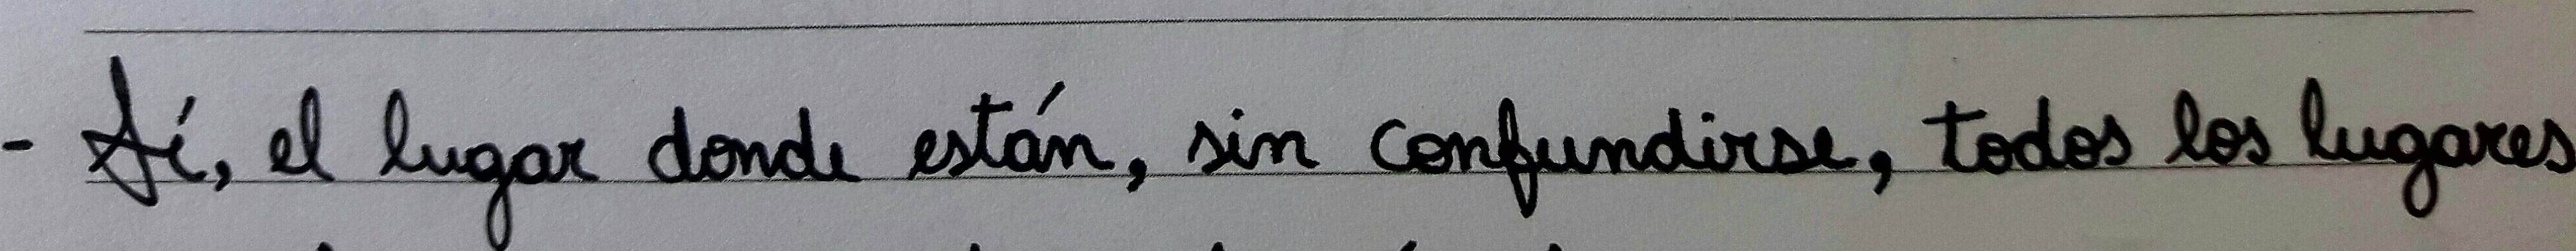 - Sí, el lugar donde están, sin confundirse, todos los lugares